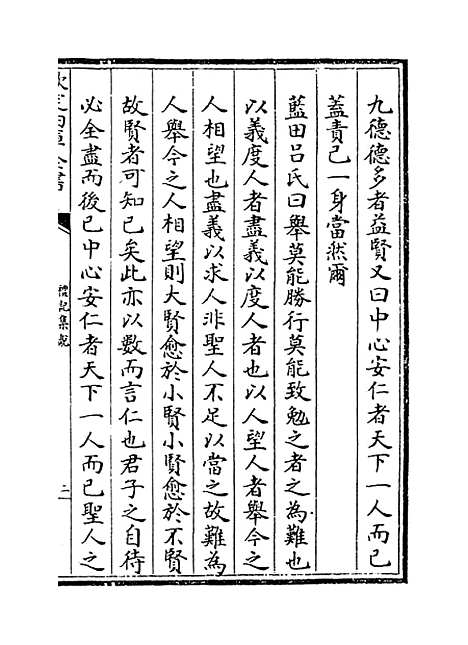 九德德多者益賢又曰中心安仁者天下一人而已
蓋責己一身當然爾
藍田吕氏曰舉莫能勝行莫能致勉之者之為難也
以義度人者盡義以度人者也以人望人者舉今之
人相望也盡義以求人非聖人不足以當之故難為
人舉今之人相望則大賢愈於小賢小賢愈於不賢
故賢者可知已矣此亦以數而言仁也君子之自待
必全盡而後已中心安仁者天下一人而已聖人之
欽定四庫全書
禮記集說
二